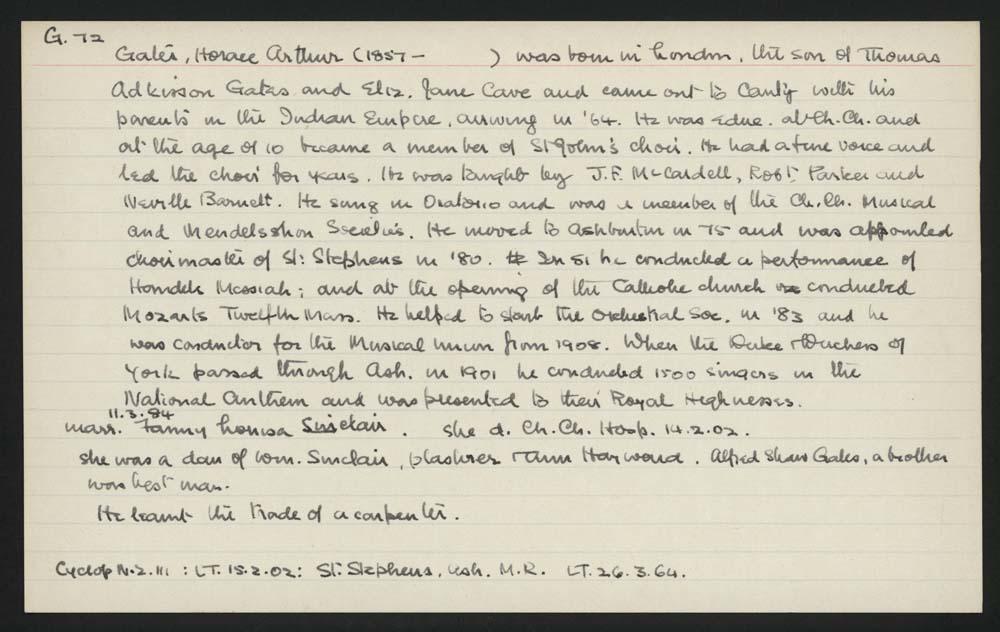 G. 72
Gates, Horace Arthur (1857 - ) was born in London, the son of Thomas
Adkinson Gates and Eliz. Jane Cave and came out to Canty with his
parents in the Indian Empire, arriving in '64. He was educ. at Ch. Ch. and
at the age of 10 became a member of St John's choir. He had a fine voice and
led the choir for years. He was taught by J.F. McCardell, Robt Parker and
Neville Barnett. He sang in Oratorio and was a member of the Ch. Ch. Musical
and Mendelsshon Societies. He moved to Ashburton in 75 and was appointed
choirmaster of St: Stephens in '80. In 81 he conducted a performance of
Handels Messiah; and at the opening of the Catholic church conducted
Mozarts Twelfth Mass. He helped to start the Orchestral Soc. in '83 and he
was conductor for the Musical Union from 1908. When the Duke & Duchess of
York passed through Ash. in 1901 he conducted 1500 singers in the
National Anthem and was presented to their Royal Highnesses.
11.3.84
marr. Fanny Louisa Sinclair. She d. Ch. Ch. Hosp. 14.2.02.
She was a dau of Wm. Sinclair, plasterer & Ann Harwood. Alfred Shaw Gates, a brother
was best man.
He learnt the trade of a carpenter.
Cyclop N.2.111 : LT. 15.2.02: St: Stephens, Ash. M.R. LT. 26.3.64.